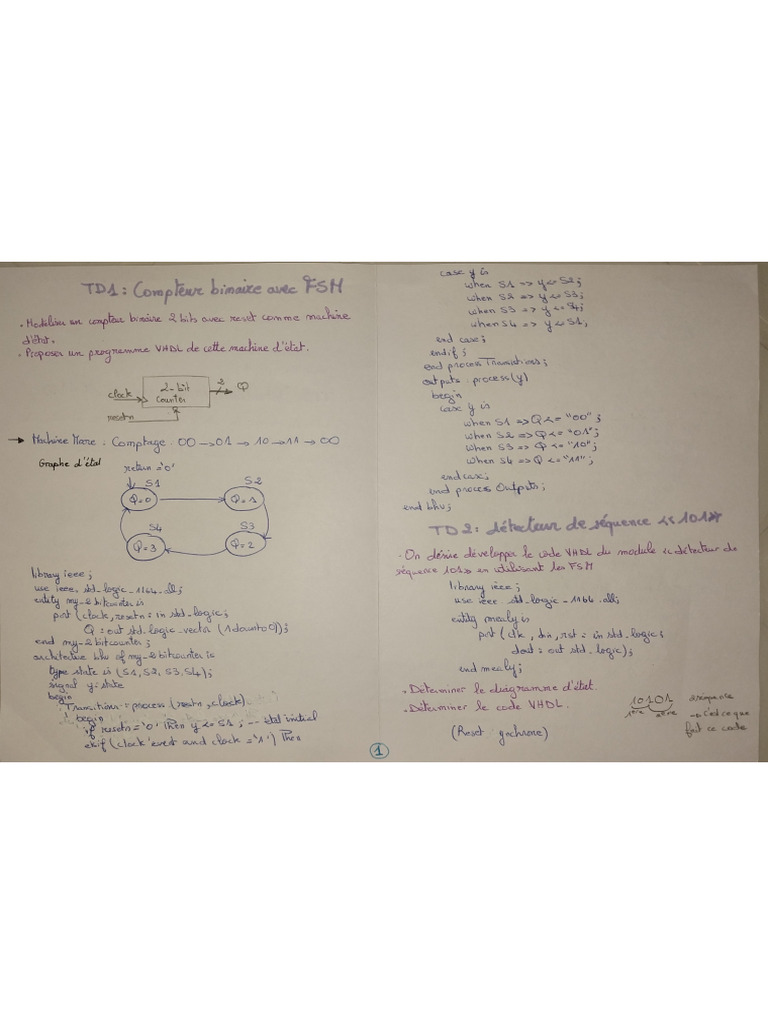 TD1 : Compteur binaire avec FSM
. Modéliser un compteur binaire 2 bits avec reset comme machine
d'état.
. Proposer un programme VHDL de cette machine d'état.
clock
2-bit
counter
2
Q
resetn
→ Machine Moore : Comptage : 00 → 01 → 10 → 11 → 00
Graphe d'état
resetn = '0'
S1
S2
Q=0
Q=1
S4
S3
Q=3
Q=2
library ieee ;
use ieee. std_logic_1164.all;
entity my_2bitcounter is
port (clock, resetn : in std_logic;
Q : out std_logic_vector (1 downto 0));
end my_2bitcounter ;
architecture bhv of my_2bitcounter is
type state is (S1, S2, S3, S4) ;
signal y: state
begin
Transitions : process (resetn, clock)
begin
if resetn = '0' Then y <= S1 ; -- état initial
elsif (clock'event and clock = '1') Then
case y is
when S1 => y <= S2 ;
when S2 => y <= S3 ;
when S3 => y <= S4 ;
when S4 => y <= S1 ;
end case ;
end if ;
end process Transitions ;
outputs : process (y)
begin
case y is
when S1 => Q <= "00" ;
when S2 => Q <= "01" ;
when S3 => Q <= "10" ;
when S4 => Q <= "11" ;
end case ;
end process Outputs ;
end bhv ;
TD2 : détecteur de séquence << 101 >>
. On désire développer le code VHDL du module << détecteur de
séquence 101 >> en utilisant les FSM
library ieee ;
use ieee. std_logic_1164.all;
entity mealy is
port (clk, din, rst : in std_logic ;
dout : out std_logic) ;
end mealy ;
. Déterminer le diagramme d'état.
. Déterminer le code VHDL.
10101
1ère 2ème
2 séquence
→ c'est ce que
fait ce code
(Reset : synchrone)
1